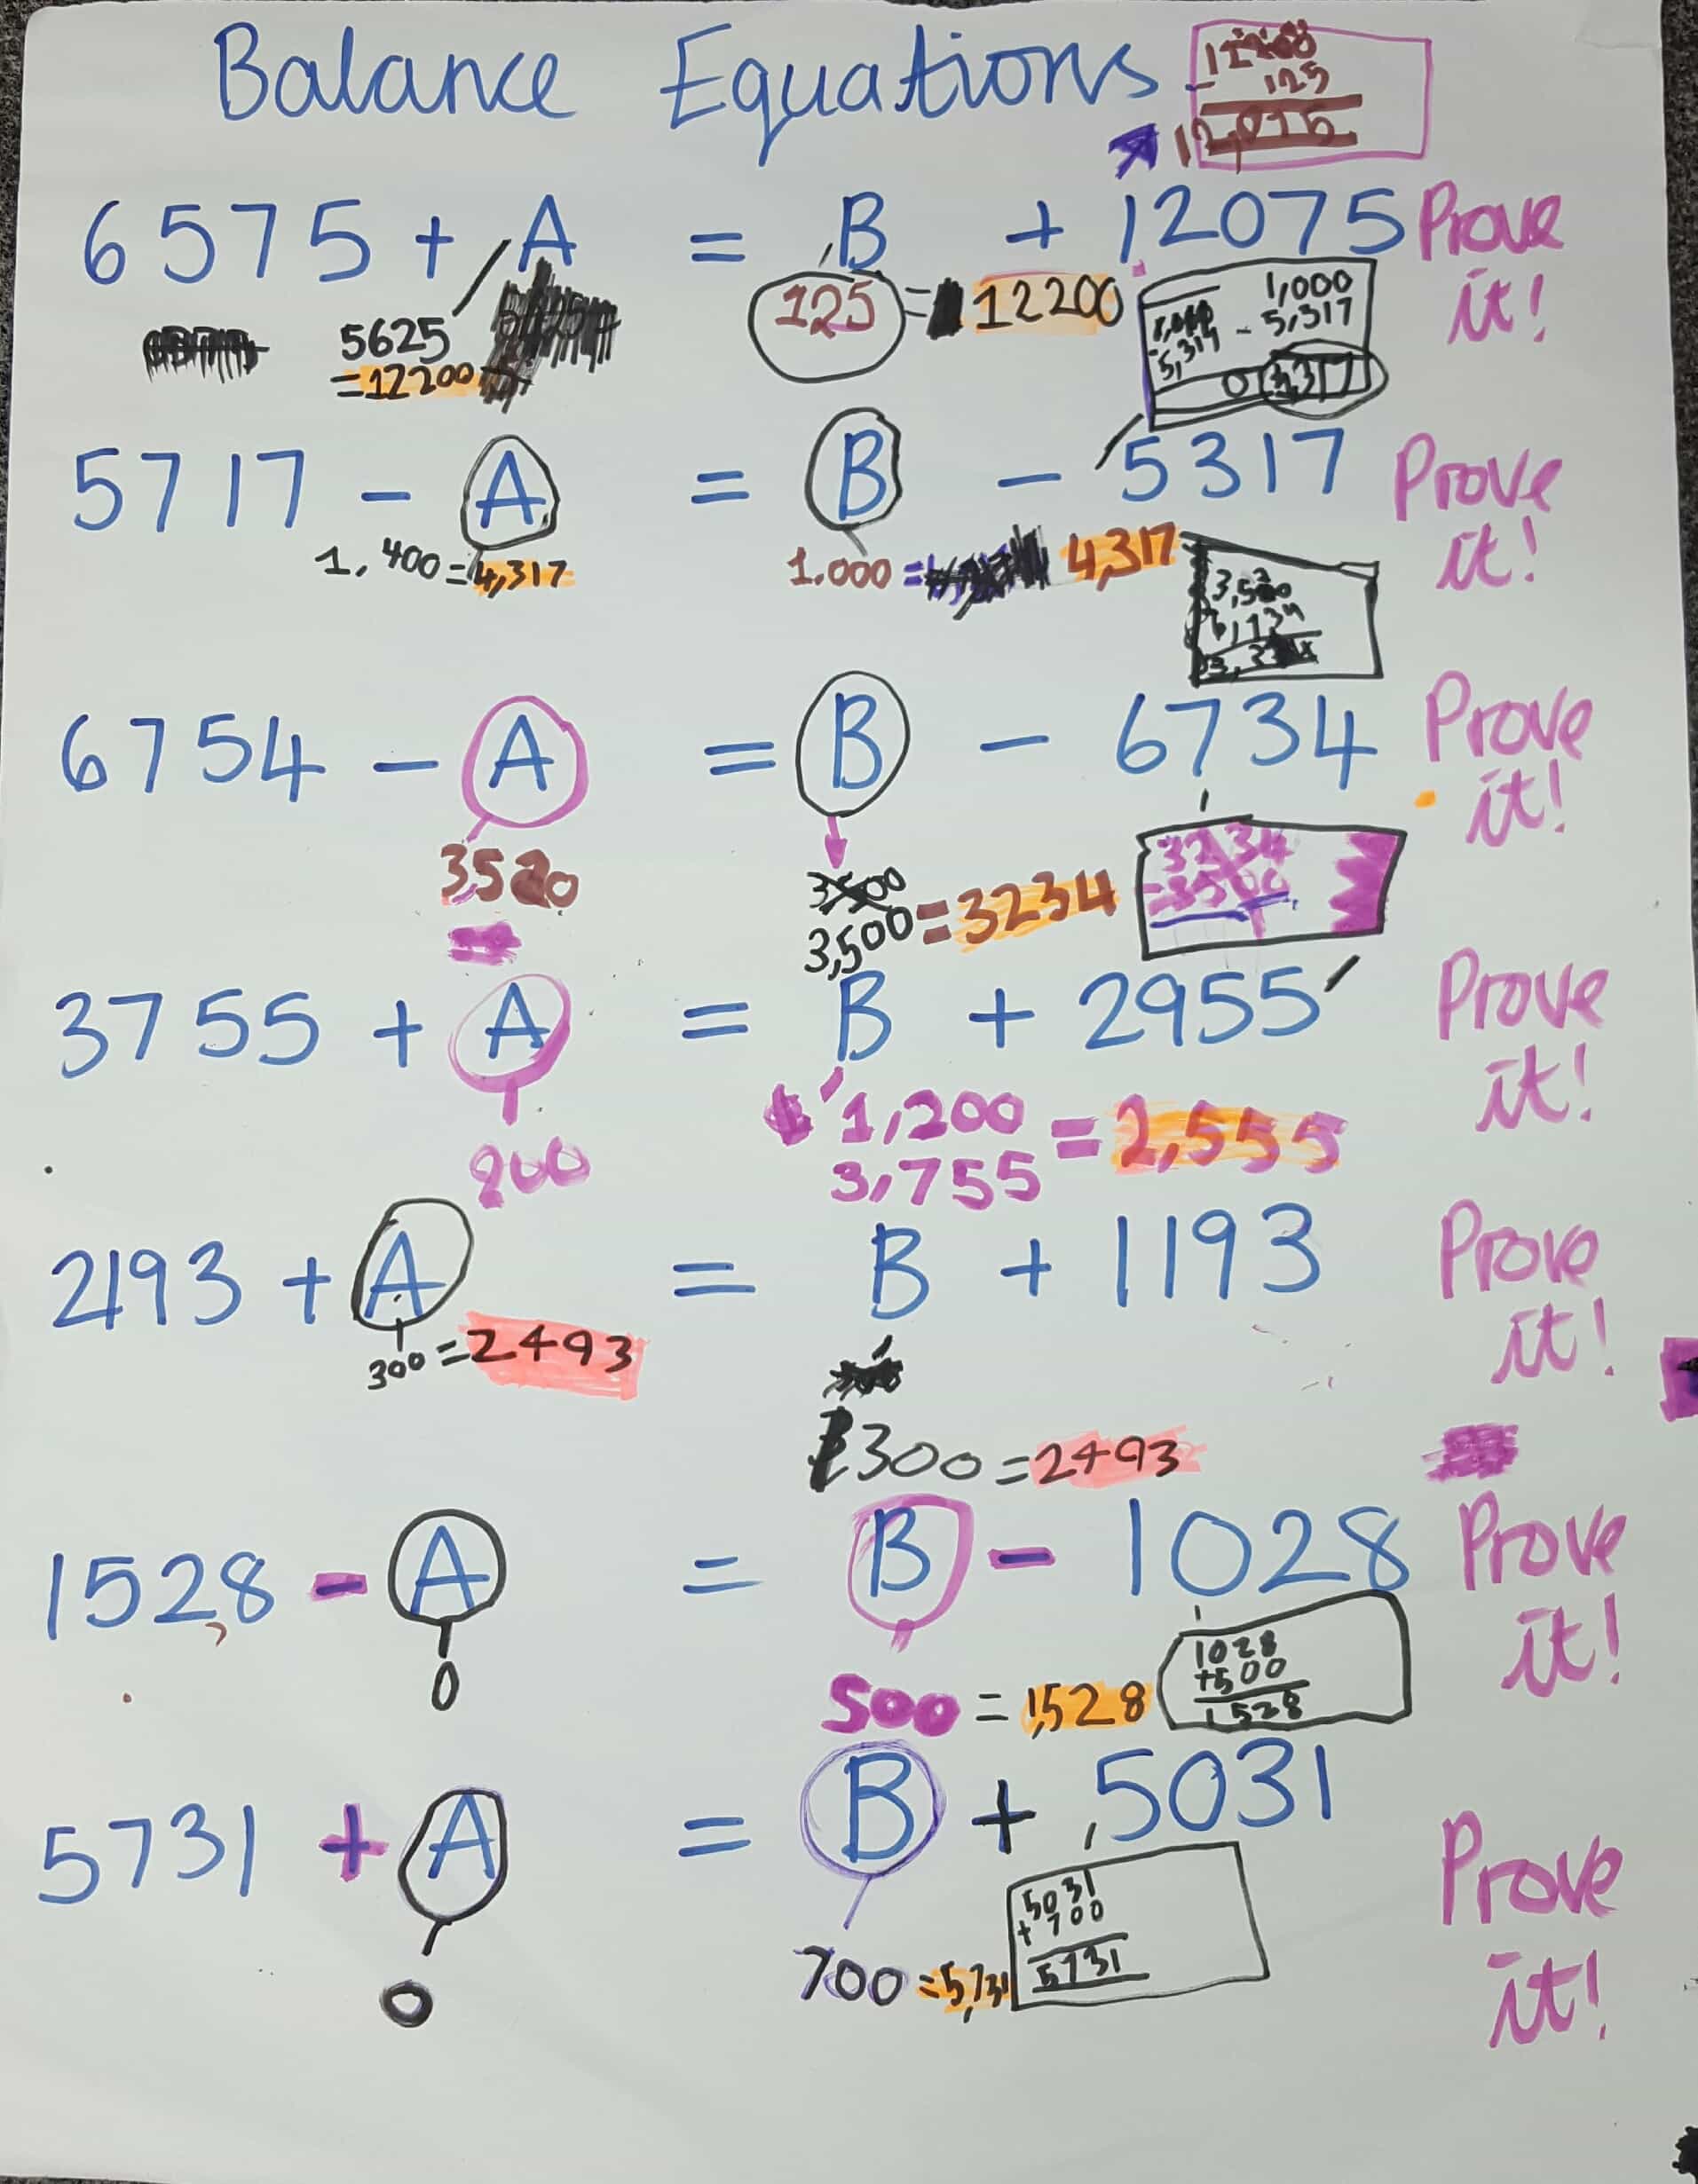 Balance Equations
12200
- 125
12,075
6575 + A = B + 12075 Prove it!
5625
=12200
125 = 12200
1,000
- 5,317
5717 - A = B - 5317 Prove it!
1,400=4,317
1.000 = 4,317
6754 - A = B - 6734 Prove it!
3520
3500
3,500 = 3234
3234
-3500
3755 + A = B + 2955 Prove it!
800
1,200 = 2,555
3,755
2193 + A = B + 1193 Prove it!
300 = 2493
300 = 2493
1528 - A = B - 1028 Prove it!
0
500 = 1,528
1028
+500
1528
5731 + A = B + 5031 Prove it!
0
700 = 5,731
5031
+ 700
5731